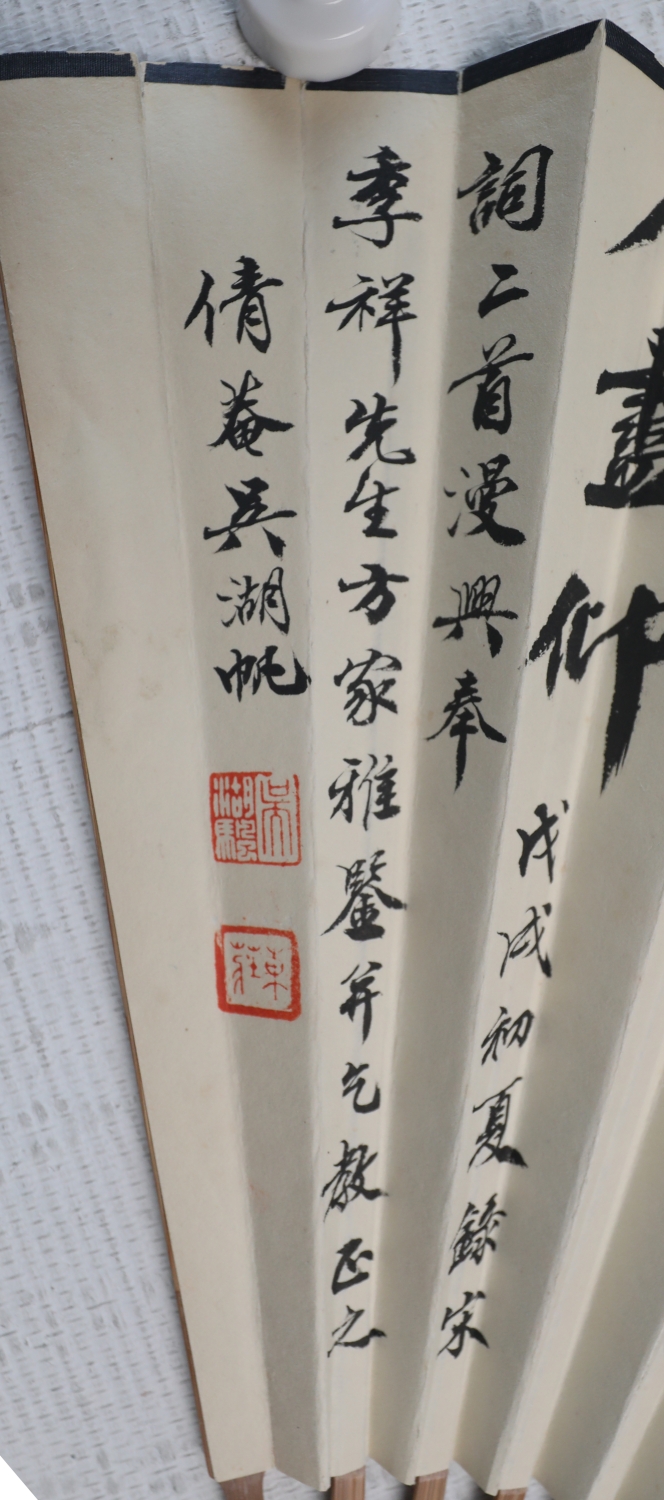 畫仰
戊戌初夏錄宋
詞二首漫興奉
季祥先生方家雅鑒并乞教正之
倩菴吳湖帆
吳湖颿
東莊